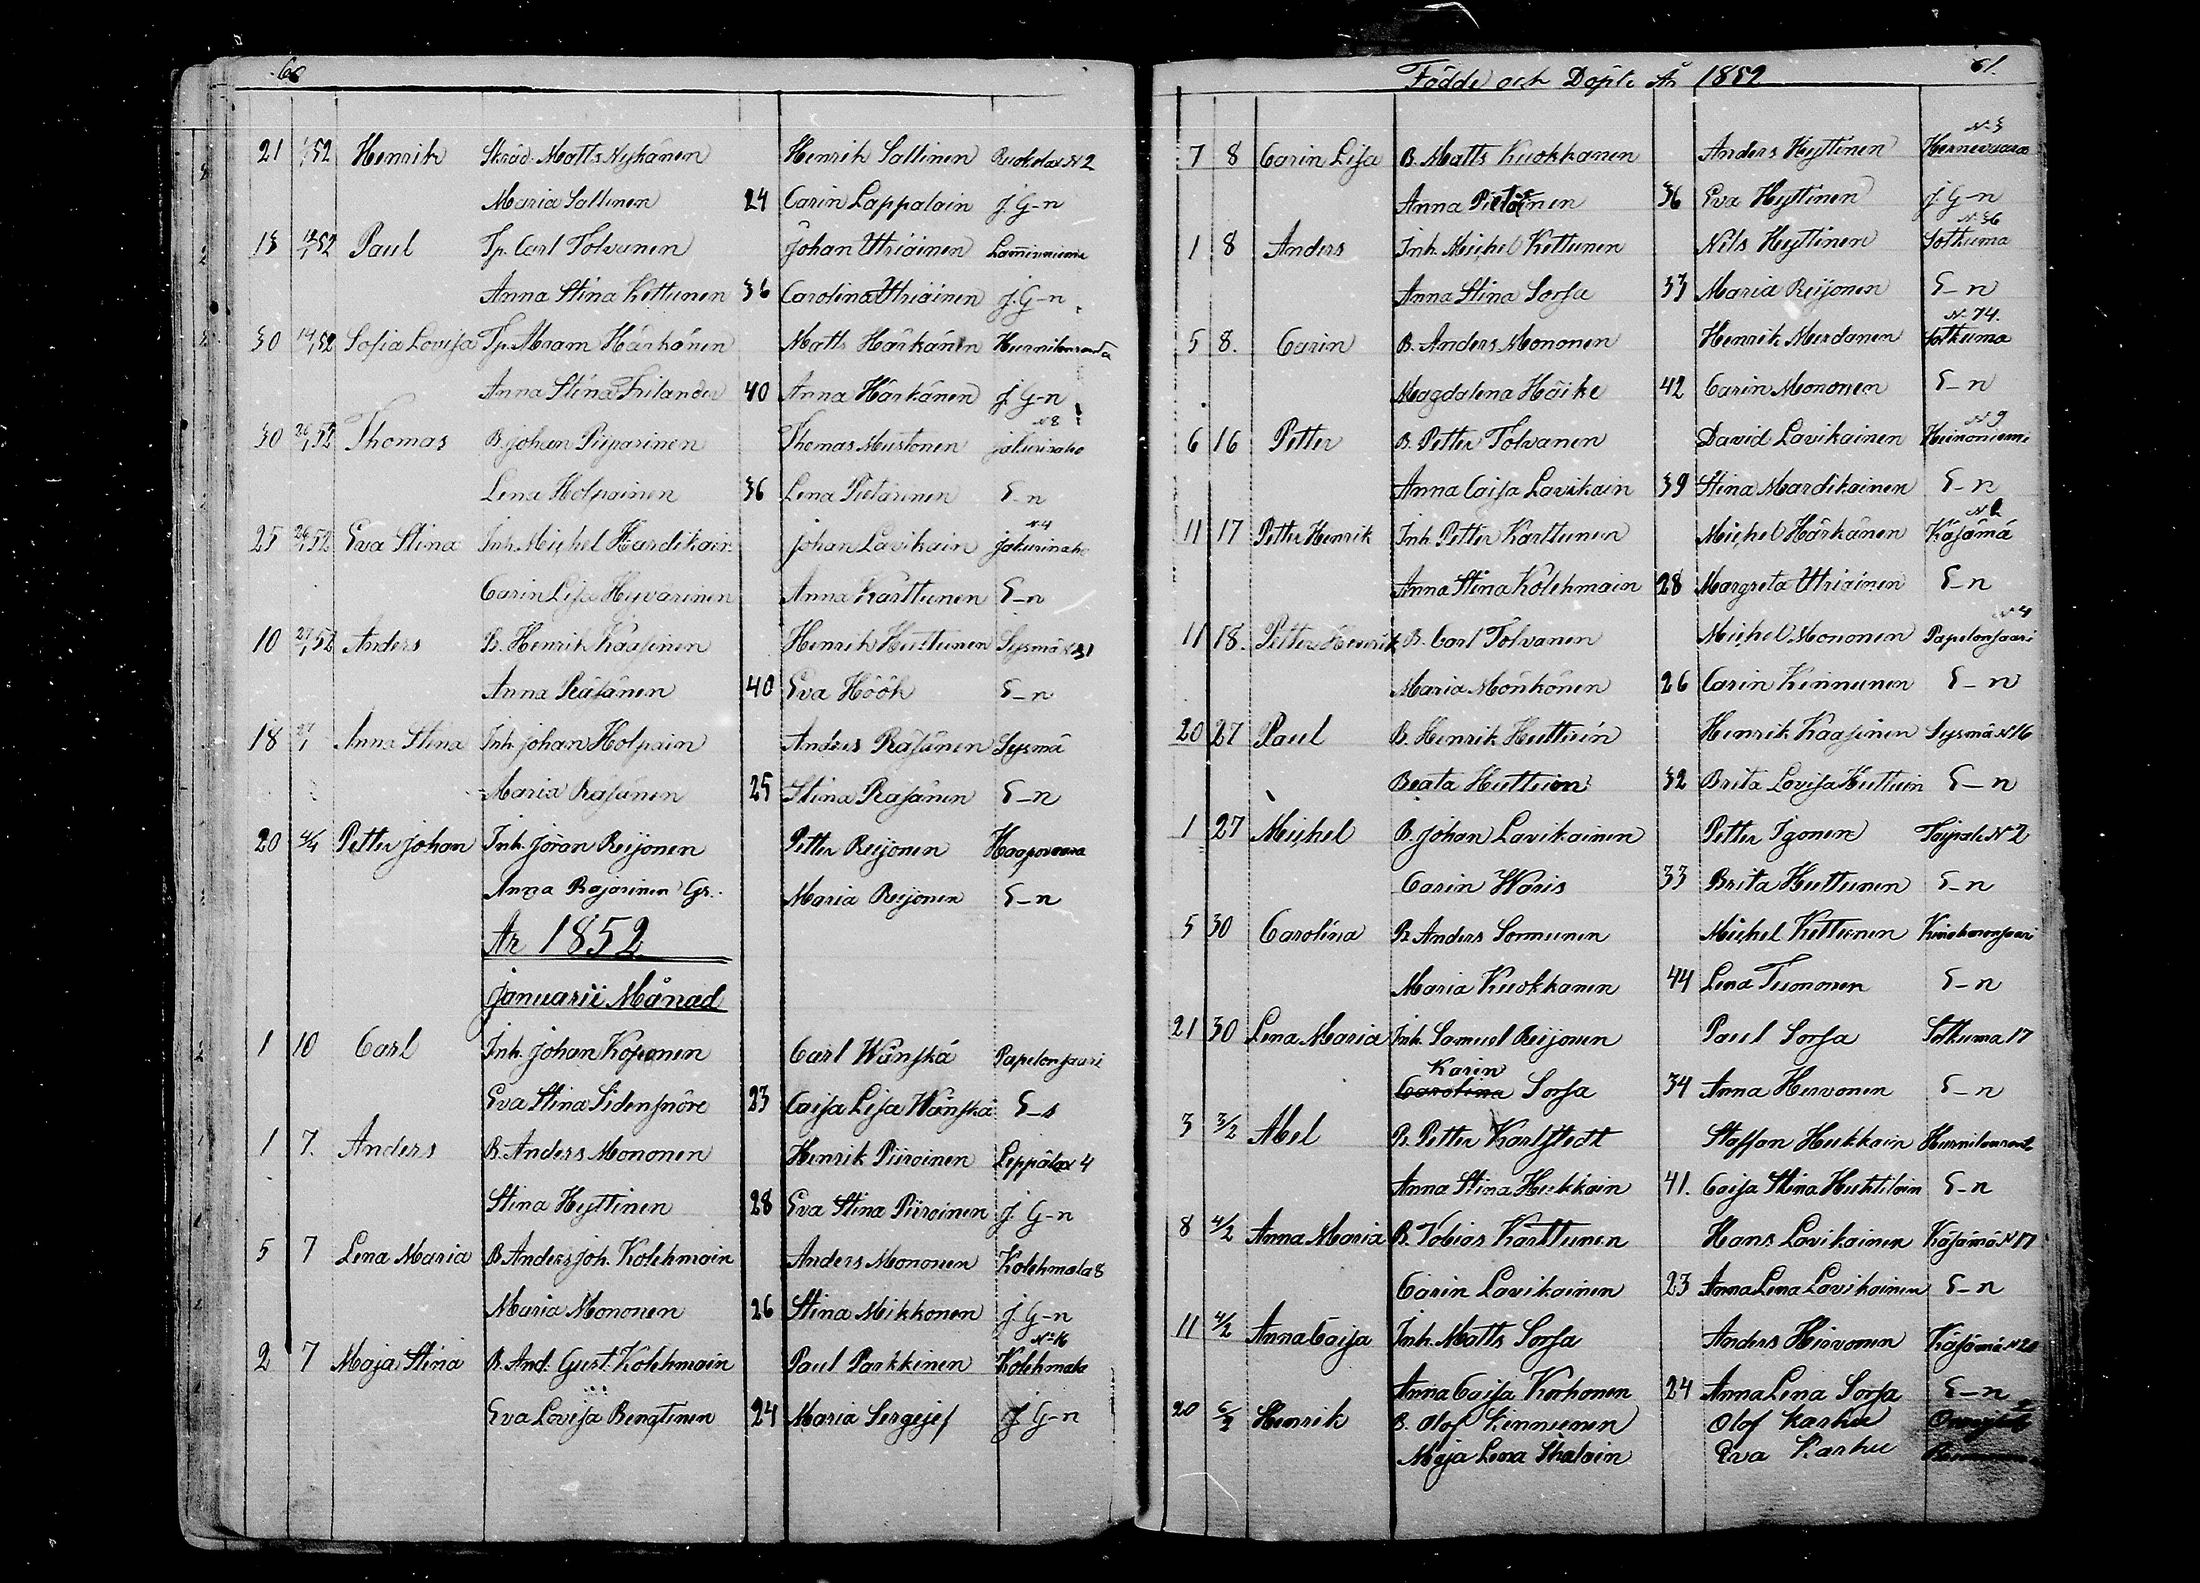 60
21 1/1 52 Henrik Skräd. Matts Nykänen Henrik Sallinen Ruokola N 2
Maria Sallinen 24 Carin Lappalain J. G-n
13 52 Paul Tp. Carl Tolvanen Johan Utriainen
Anna Stina Kettunen 36 Carolina Utriainen J. G-n
30 52 Sofia Lovisa Tp. Abram Härkönen Matts Härkänen
Anna Stina Frilander 40 Anna Härkänen J. G-n
N 8
30 52 Thomas B. Johan Piiparinen Thomas Mustonen
Lena Holpainen 36 Lena Pietarinen E-n
N 4
25 52 Eva Stina Inh. Michel Hardikain Johan Lavikain
Carin Lisa Hyvärinen Anna Karttunen E-n
10 27/1 52 Anders B. Henrik Kaasinen Henrik Huttunen Sysmä N 31
Anna Räsänen 40 Eva Höök E-n
18 27/1 Anna Stina Inh. Johan Holpain Anders Räsänen Sysmä
Maria Räsänen 25 Stina Räsänen E-n
20 4/4 Petter Johan Inh. Jöran Reijonen Petter Reijonen Haapovaara
Anna Rajarinen Gr. Maria Reijonen E-n
År 1852
Januarii Månad
1 10 Carl Inh. Johan Koponen Carl Wänskä Papelonsaari
Eva Stina Sidensnöre 23 Caisa Lisa Wänskä E-s
1 7. Anders B. Anders Mononen Henrik Piiroinen Leppälax 4
Stina Hyttinen 28 Eva Stina Piiroinen J. G-n
5 7 Lena Maria B. Anders Joh. Kolehmain Anders Mononen Kolehmala 8
Maria Mononen 26 Stina Mikkonen J. G-n
N:16
2 7 Maja Stina B. And. Gust. Kolehmain Paul Parkkinen Kolehmala
Eva Lovisa Bengtinen 24 Maria Sergejef J. G-n
Födde och Döpte År 1852 61.
N:3
7 8 Carin Lisa B. Matts Kuokkanen Anders Hyttinen Hernevaara
Anna Pietarinen 36 Eva Hyttinen J. G-n
N:36
1 8 Anders Inh. Michel Kettunen Nils Hyttinen Sotkuma
Anna Stina Sorsa 33 Maria Reijonen E-n
N:74.
5 8. Carin B. Anders Mononen Henrik Mustanen Sotkuma
Magdalena Häike 42 Carin Mononen E-n
N 9
6 16 Petter B. Petter Tolvanen David Lavikainen Heinoniemi
Anna Caisa Lavikain 39 Stina Mardikainen E-n
11 17 Petter Henrik Inh. Petter Karttunen Michel Härkänen Käsämä
Anna Stina Kolehmain 28 Margreta Utriainen E-n
N 4
11 18. Petter Henrik B. Carl Tolvanen Michel Mononen Papelonsaari
Maria Mönkönen 26 Carin Kinnunen E-n
20 27 Paul B. Henrik Huttuin Henrik Kaasinen Sysmä N 16
Beata Huttuin 32 Brita Lovisa Huttuin E-n
1 27 Michel B. Johan Lavikainen Petter Igonen Taipale N 2
Carin Waris 33 Brita Huttunen E-n
5 30 Carolina B. Anders Sormunen Michel Kettunen
Maria Kuokkanen 44 Lena Tuononen E-n
21 30 Lena Maria Inh. Samuel Reijonen Paul Sorsa Sotkuma 17
Karin
Carolina Sorsa 34 Anna Hervonen E-n
3 3/2 Abel B. Petter Karlstedt Staffan Hukkain
Anna Stina Hukkain 41. Caisa Stina Huhtilain E-n
8 4/2 Anna Maria B. Tobias Karttunen Hans Lavikainen Käsämä N 17
Carin Lavikainen 23 Anna Lena Lavikainen E-n
11 4/2 Anna Caisa Inh. Matts Sorsa Anders Hirvonen Käsämä N 20
Anna Caisa Korhonen 24 Anna Lena Sorsa E-n
20 6/2 Henrik B. Olof Kinnunen Olof Karhu
Maja Lena Ikalain Eva Karhu